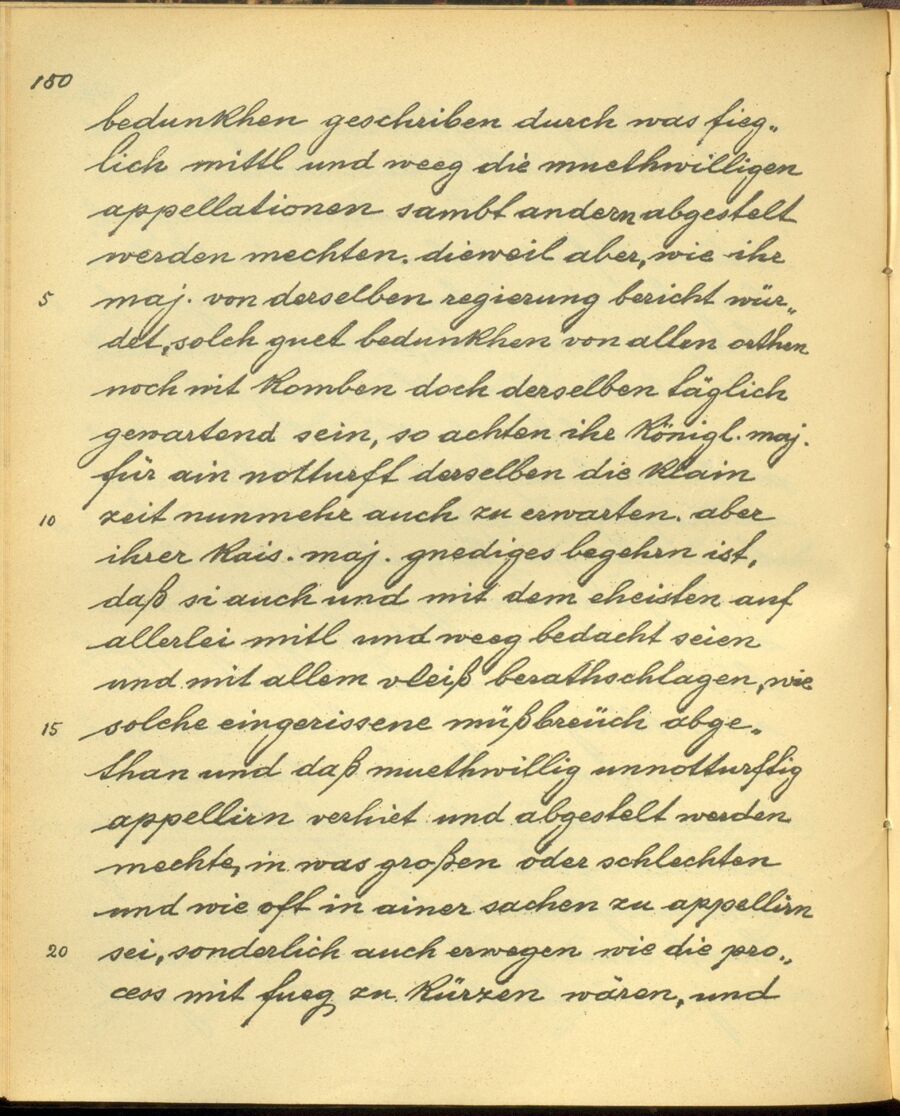 150
bedunkhen geschriben durch was fieg„
lich mittl und weeg die muethwilligen
appellationen sambt andern abgestelt
werden mechten. dieweil aber, wie ihr
5 maj. von derselben regierung bericht wür„
det, solch guet bedunkhen von allen orthen
noch nit komben doch derselben täglich
gewartend sein, so achten ihr königl. maj.
für ain notturft derselben die klain
10 zeit nunmehr auch zu erwarten. aber
ihrer kais. maj. gnediges begehrn ist,
daß si auch und mit dem eheisten auf
allerlei mitl und weeg bedacht seien
und mit allem vleiß berathschlagen, wie
15 solche eingerissene müßbreüch abge„
than und daß muethwillig unnotturftig
appellirn verhiet und abgestelt werden
mechte, in was großen oder schlechten
und wie oft in ainer sachen zu appellirn
20 sei, sonderlich auch erwegen wie die pro„
cess mit fueg zu kürzen wären, und